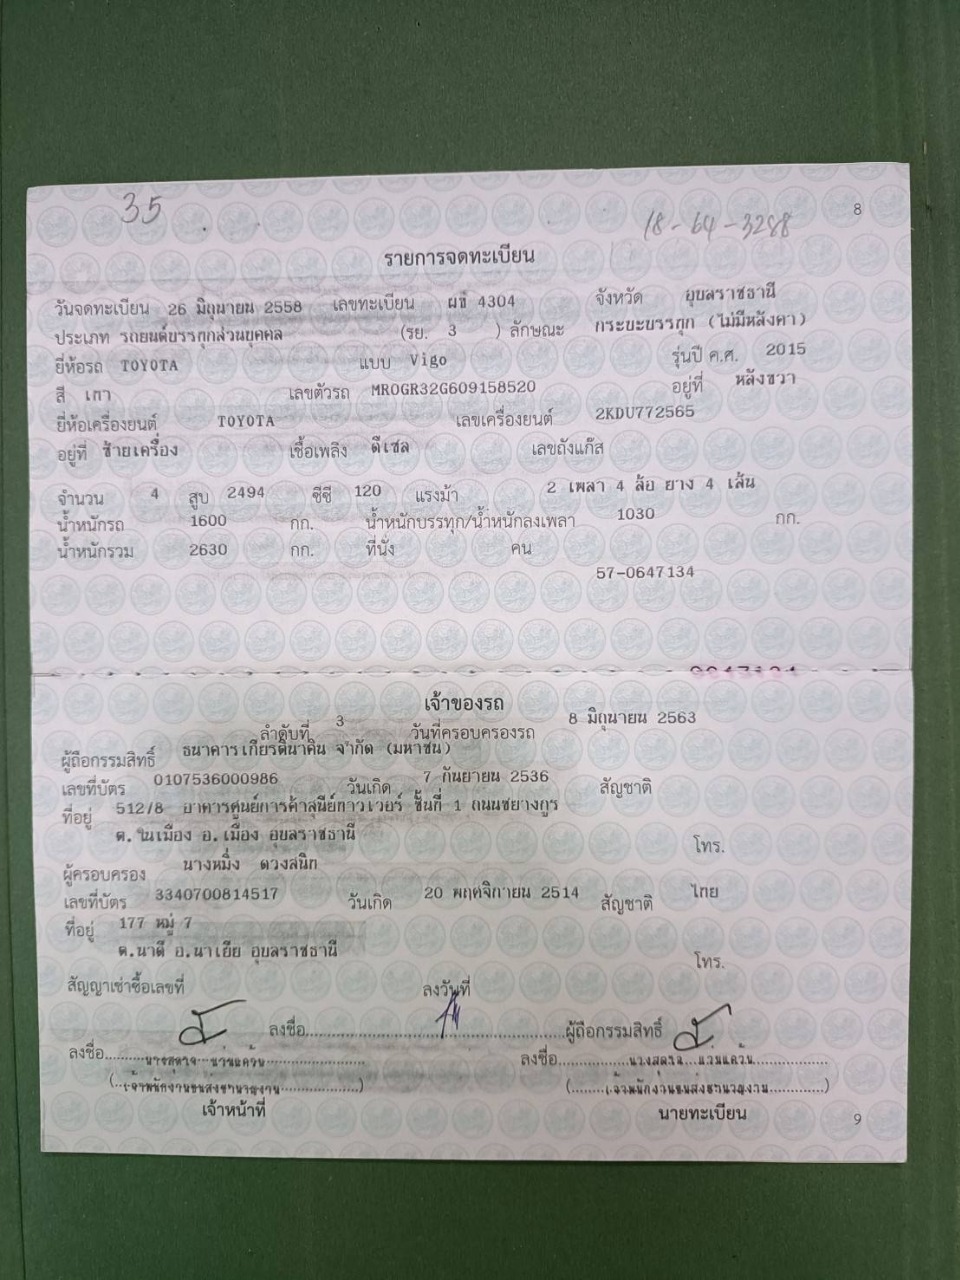 35
18-64-3288
8
รายการจดทะเบียน
วันจดทะเบียน 26 มิถุนายน 2558 เลขทะเบียน ผข 4304 จังหวัด อุบลราชธานี
ประเภท รถยนต์บรรทุกส่วนบุคคล (รย. 3 ) ลักษณะ กระบะบรรทุก (ไม่มีหลังคา)
ยี่ห้อรถ TOYOTA แบบ Vigo รุ่นปี ค.ศ. 2015
สี เทา เลขตัวรถ MR0GR32G609158520 อยู่ที่ หลังขวา
ยี่ห้อเครื่องยนต์ TOYOTA เลขเครื่องยนต์ 2KDU772565
อยู่ที่ ซ้ายเครื่อง เชื้อเพลิง ดีเซล เลขถังแก๊ส
จำนวน 4 สูบ 2494 ซีซี 120 แรงม้า 2 เพลา 4 ล้อ ยาง 4 เส้น
น้ำหนักรถ 1600 กก. น้ำหนักบรรทุก/น้ำหนักลงเพลา 1030 กก.
น้ำหนักรวม 2630 กก. ที่นั่ง คน
57-0647134
เจ้าของรถ
ลำดับที่ 3 วันที่ครอบครองรถ 8 มิถุนายน 2563
ผู้ถือกรรมสิทธิ์ ธนาคารเกียรตินาคิน จำกัด (มหาชน)
เลขที่บัตร 0107536000986 วันเกิด 7 กันยายน 2536 สัญชาติ
ที่อยู่ 512/8 อาคารศูนย์การค้าสุนีย์ทาวเวอร์ ชั้นที่ 1 ถนนชยางกูร
ต.ในเมือง อ.เมือง อุบลราชธานี โทร.
ผู้ครอบครอง นางหมิ่ง ดวงสนิท
เลขที่บัตร 3340700814517 วันเกิด 20 พฤศจิกายน 2514 สัญชาติ ไทย
ที่อยู่ 177 หมู่ 7
ต.นาดี อ.นาเยีย อุบลราชธานี โทร.
สัญญาเช่าซื้อเลขที่ ลงวันที่
ลงชื่อ ผู้ถือกรรมสิทธิ์
ลงชื่อ ลงชื่อ
(เจ้าพนักงานขนส่งชำนาญงาน) (เจ้าพนักงานขนส่งชำนาญงาน)
เจ้าหน้าที่ นายทะเบียน
9